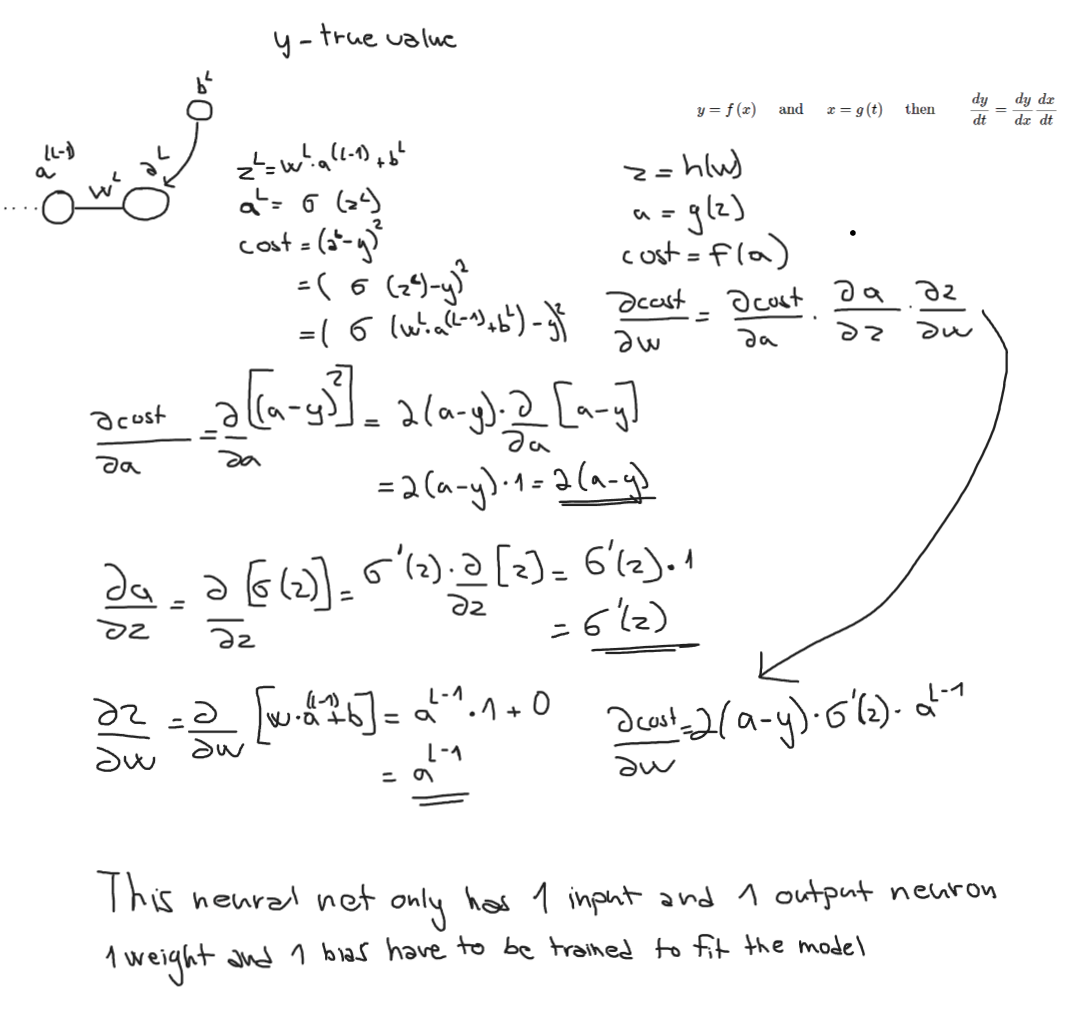 y - true value
b^L
y = f(x) and x = g(t) then dy/dt = dy/dx dx/dt
a^(L-1) w^L a^L
z^L = w^L · a^(L-1) + b^L
a^L = σ (z^L)
cost = (a^L - y)^2
= ( σ (z^L) - y)^2
= ( σ (w^L · a^(L-1) + b^L) - y)^2
z = h(w)
a = g(z)
cost = f(a)
∂cost/∂w = ∂cost/∂a · ∂a/∂z · ∂z/∂w
∂cost/∂a = ∂/∂a [(a-y)^2] = 2(a-y) · ∂/∂a [a-y]
= 2(a-y) · 1 = 2(a-y)
∂a/∂z = ∂/∂z [σ(z)] = σ'(z) · ∂/∂z [z] = σ'(z) · 1
= σ'(z)
∂z/∂w = ∂/∂w [w · a^(L-1) + b] = a^L-1 · 1 + 0
= a^L-1
∂cost/∂w = 2(a-y) · σ'(z) · a^L-1
This neural net only has 1 input and 1 output neuron
1 weight and 1 bias have to be trained to fit the model